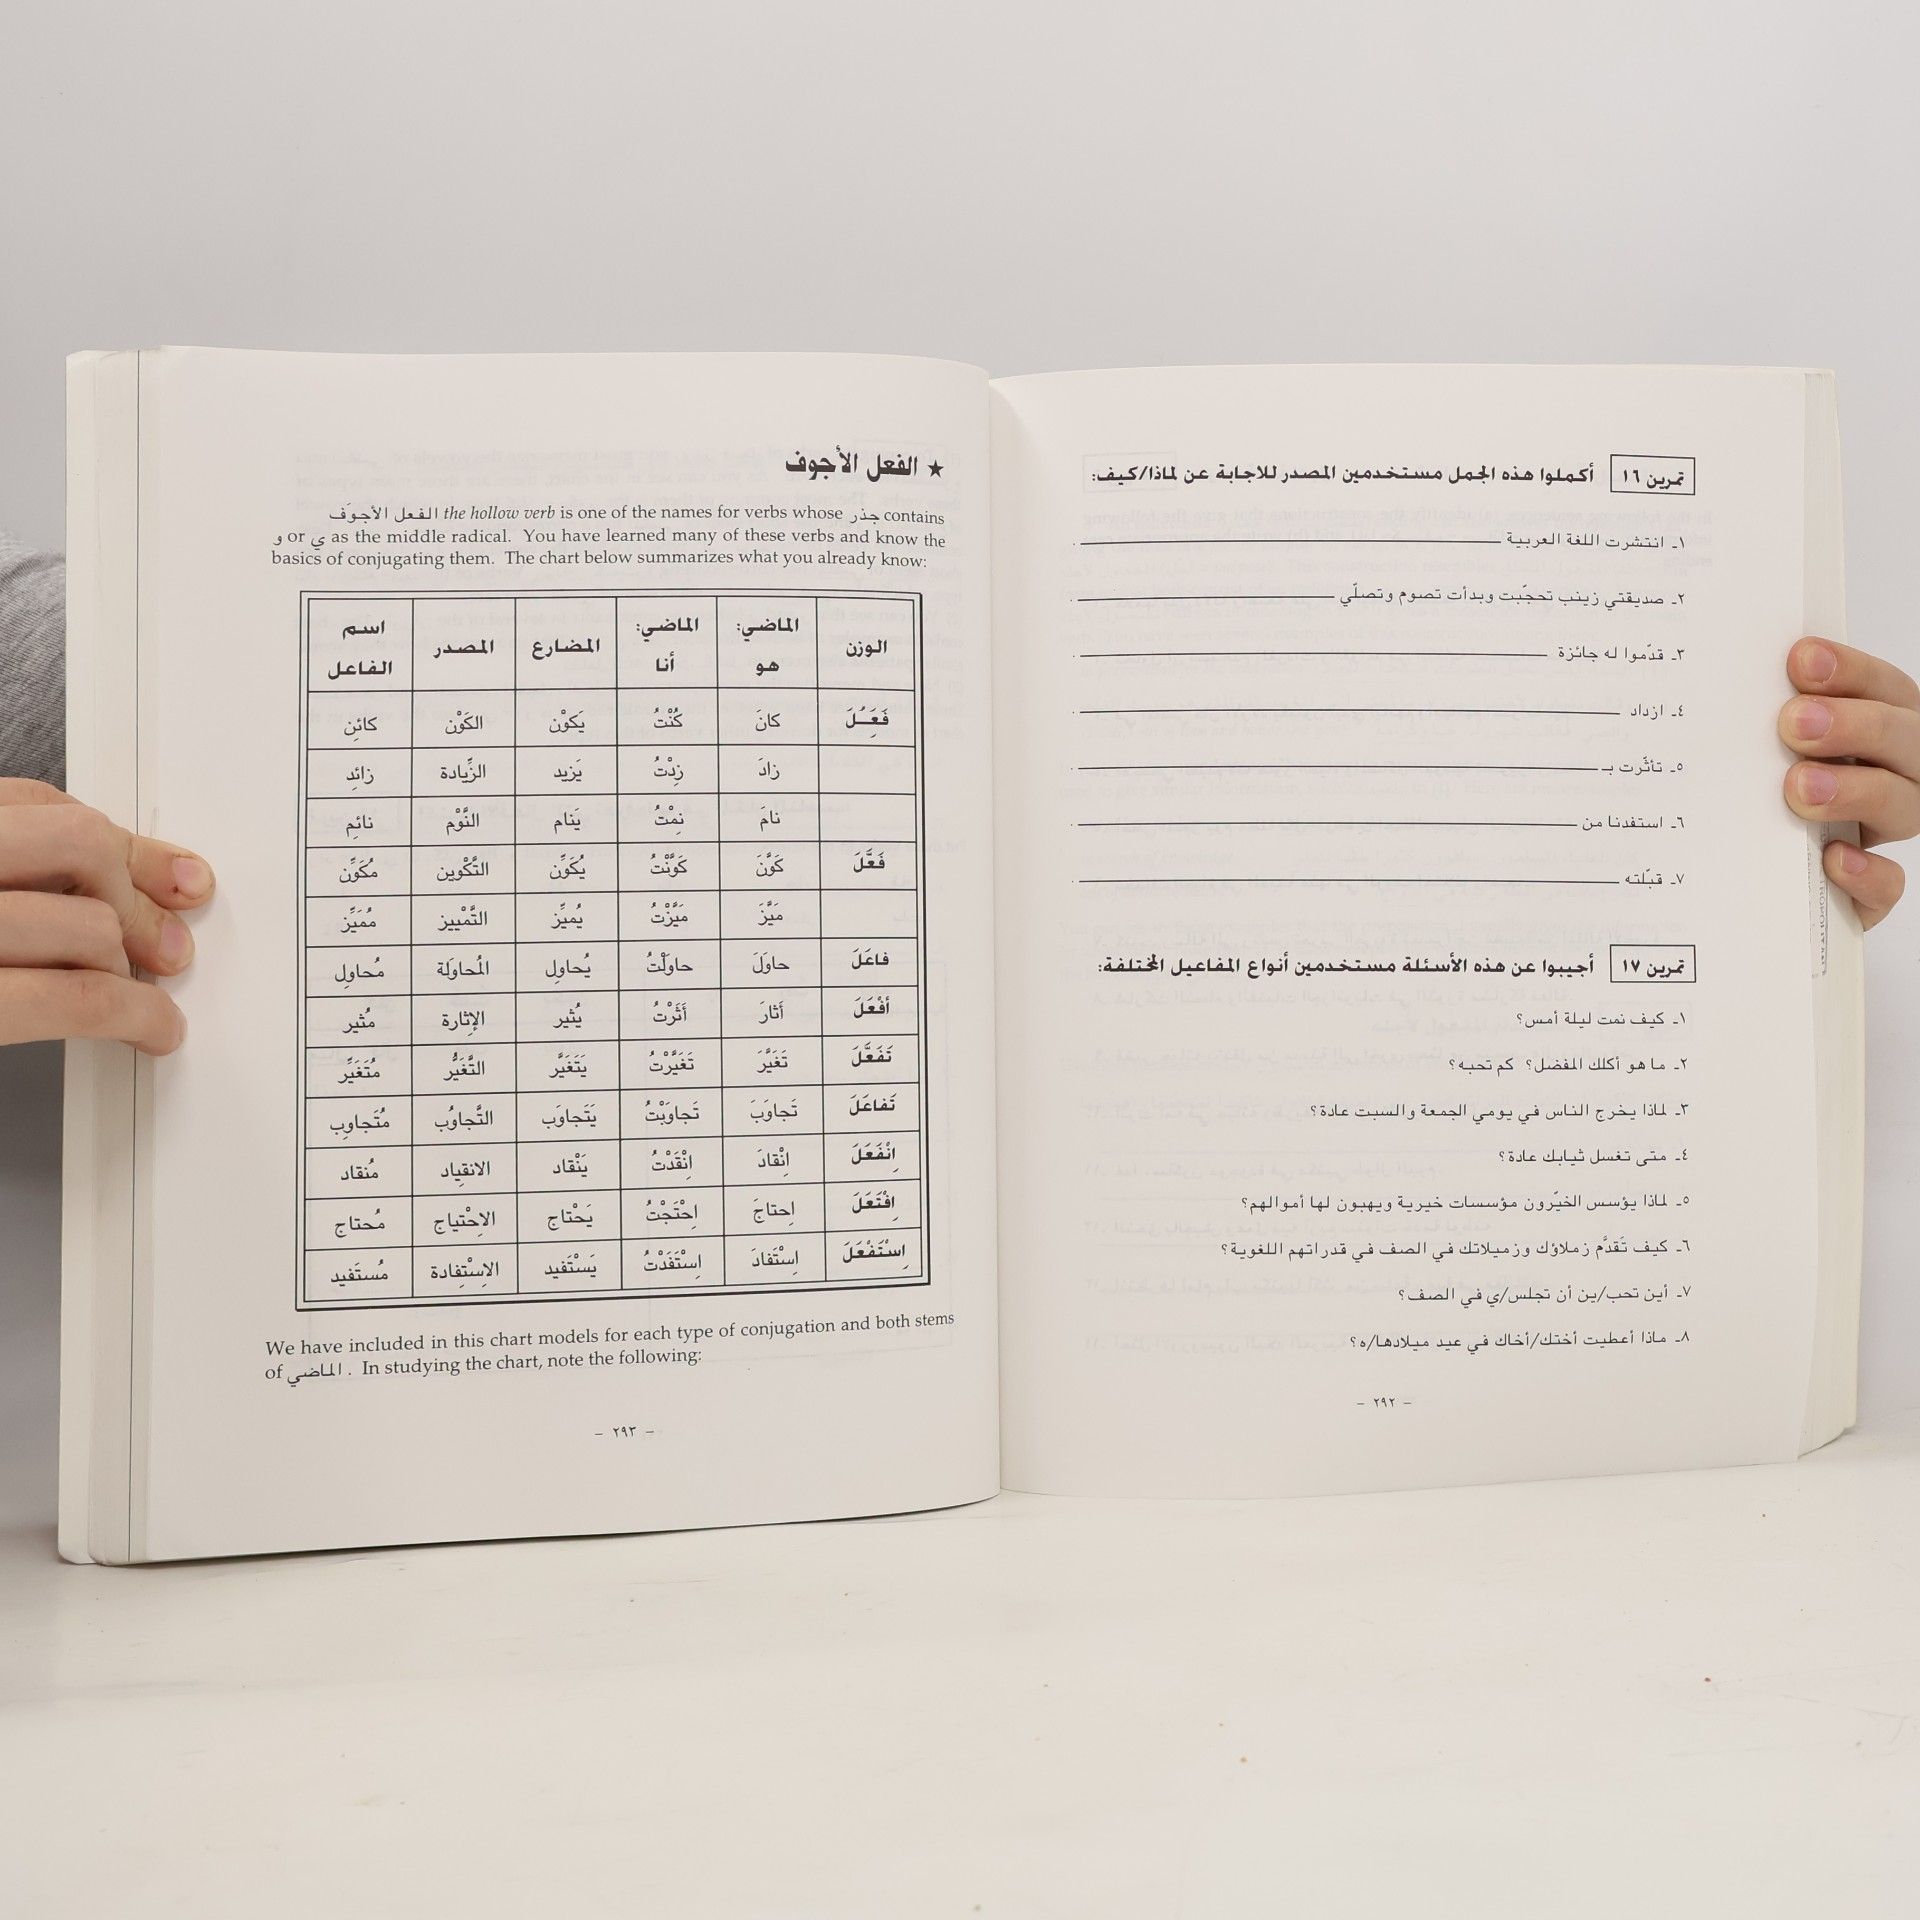 تمرين ١٦ أكملوا هذه الجمل مستخدمين المصدر للاجابة عن لماذا/كيف:
١ـ انتشرت اللغة العربية ـــــــــــــــــــــ .
٢ـ صديقتي زينب تحجّبت وبدأت تصوم وتصلّي ـــــــــــــــــــــ .
٣ـ قدّموا له جائزة ـــــــــــــــــــــ .
٤ـ ازداد ـــــــــــــــــــــ .
٥ـ تأثّرت بـ ـــــــــــــــــــــ .
٦ـ استفدنا من ـــــــــــــــــــــ .
٧ـ قبّلته ـــــــــــــــــــــ .
تمرين ١٧ أجيبوا عن هذه الأسئلة مستخدمين أنواع المفاعيل المختلفة:
١ـ كيف نمت ليلة أمس؟
٢ـ ما هو أكلك المفضل؟ كم تحبه؟
٣ـ لماذا يخرج الناس في يومي الجمعة والسبت عادة؟
٤ـ متى تغسل ثيابك عادة؟
٥ـ لماذا يؤسس الخيّرون مؤسسات خيرية ويهبون لها أموالهم؟
٦ـ كيف تَقدَّم زملاؤك وزميلاتك في الصف في قدراتهم اللغوية؟
٧ـ أين تحب/ين أن تجلس/ي في الصف؟
٨ـ ماذا أعطيت أختك/أخاك في عيد ميلادها/ه؟
– ٢٩٢ –
★ الفعل الأجوف
الفعل الأجوَف the hollow verb is one of the names for verbs whose جذر contains
و or ي as the middle radical. You have learned many of these verbs and know the
basics of conjugating them. The chart below summarizes what you already know:
الوزن الماضي: هو الماضي: أنا المضارع المصدر اسم الفاعل
فَعَُِلَ كانَ كُنْتُ يَكوْن الكَوْن كائنِ
زادَ زِدْتُ يَزيد الزِّيادة زائدِ
نامَ نِمْتُ يَنام النَّوْم نائمِ
فَعَّلَ كَوَّنَ كَوَّنْتُ يُكَوِّن التَّكْوين مُكَوِّن
مَيَّزَ مَيَّزْتُ يُميِّز التَّمْييز مُمَيِّز
فاعَلَ حاوَلَ حاوَلْتُ يُحاوِل المُحاوَلة مُحاوِل
أفْعَلَ أثارَ أثَرْتُ يُثير الإثارة مُثير
تَفَعَّلَ تَغَيَّرَ تَغَيَّرْتُ يَتَغَيَّر التَّغَيُّر مُتَغَيِّر
تَفاعَلَ تَجاوَبَ تَجاوَبْتُ يَتَجاوَب التَّجاوُب مُتَجاوِب
اِنْفَعَلَ اِنْقادَ اِنْقَدْتُ يَنْقاد الانقِياد مُنقاد
اِفْتَعَلَ اِحتاجَ اِحْتَجْتُ يَحْتاج الاِحْتِياج مُحتاج
اِسْتَفْعَلَ اِسْتَفادَ اِسْتَفَدْتُ يَسْتَفيد الاِسْتِفادة مُستَفيد
We have included in this chart models for each type of conjugation and both stems
of الماضي . In studying the chart, note the following:
– ٢٩٣ –